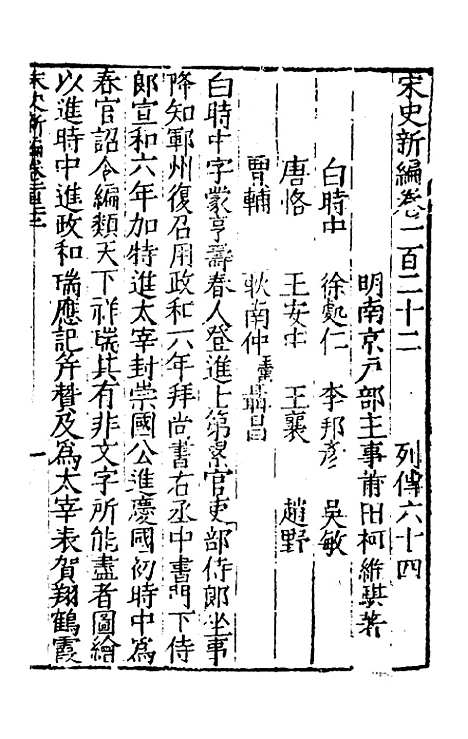 宋史新編卷一百二十二　列傳六十四
明南京戶部主事莆田柯維騏著
白時中　徐處仁　李邦彥　吳敏
唐恪　王安中　王襄　趙野
曹輔　耿南仲　聶昌
白時中字蒙亨壽春人登進士第累官吏部侍郎坐事
降知鄆州復召用政和六年拜尚書右丞中書門下侍
郎宣和六年加特進太宰封崇國公進慶國初時中為
春官詔令編類天下祥瑞其有非文字所能盡者圖繪
以進時中進政和瑞應記并贊及為太宰表賀翔鶴霞
宋史新編卷百二十二
一